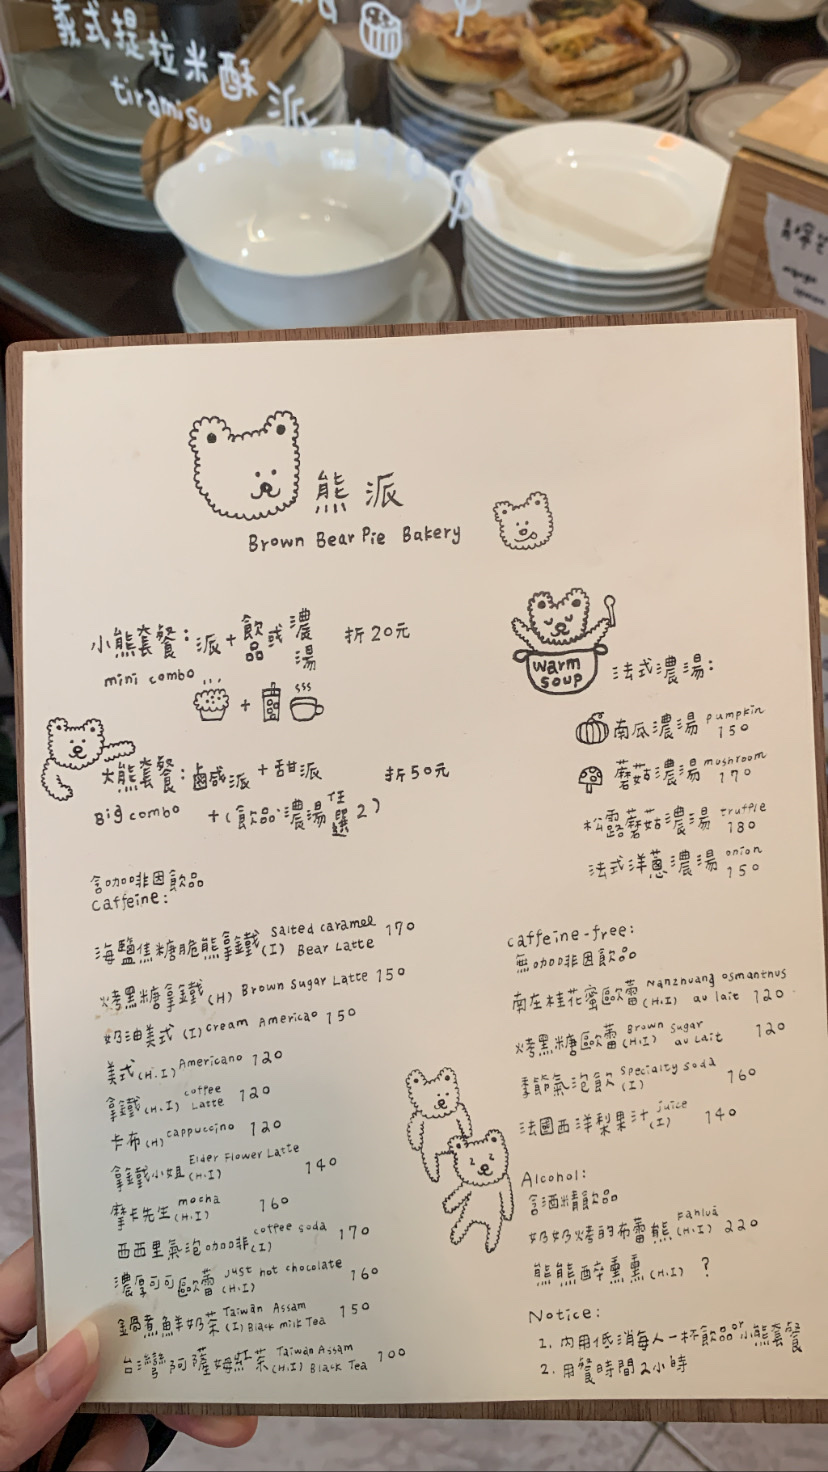 義式提拉米酥派
tiramisu
190 $
熊派
Brown Bear Pie Bakery
小熊套餐：派+飲品或濃湯 折20元
mini combo
大熊套餐：鹵鹹派+甜派 折50元
Big combo +(飲品、濃湯任選2)
warm
soup
法式濃湯：
南瓜濃湯 pumpkin 150
蘑菇濃湯 mushroom 170
松露蘑菇濃湯 truffle 180
法式洋蔥濃湯 onion 150
含咖啡因飲品
Caffeine:
海鹽焦糖脆熊拿鐵 Salted caramel (I) Bear Latte 170
烤黑糖拿鐵 (H) Brown Sugar Latte 150
奶油美式 (I) Cream Americao 150
美式 (H.I) Americano 120
拿鐵 (H.I) coffee Latte 120
卡布 (H) cappuccino 120
拿鐵小姐 Elder Flower Latte (H.I) 140
摩卡先生 mocha (H.I) 160
西西里氣泡咖啡 coffee soda (I) 170
濃厚可可歐蕾 just hot chocolate (H.I) 160
鍋煮鮮奶茶 Taiwan Assam (I) Black milk Tea 150
台灣阿薩姆紅茶 Taiwan Assam (H.I) Black Tea 100
caffeine-free:
無咖啡因飲品
南庄桂花蜜歐蕾 Nanzhuang osmanthus (H.I) au lait 120
烤黑糖歐蕾 Brown Sugar (H.I) au Lait 120
季節氣泡飲 Specialty soda (I) 160
法國西洋梨果汁 juice (I) 140
Alcohol:
含酒精飲品
奶奶烤的布蕾熊 (H.I) 220
熊熊醉熏熏 (H.I) ?
Notice:
1. 內用低消每人一杯飲品or小熊套餐
2. 用餐時間2小時